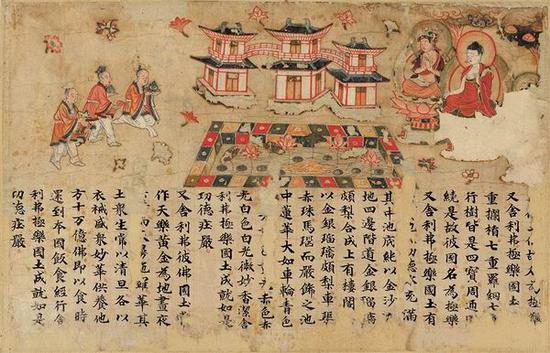 又舍利弗極樂國土
重欄楯七重羅網七重
行樹皆是四寶周迊
繞是故彼國名為極樂
又舍利弗極樂國土有
功德水充滿
其中池底純以金沙
地四邊階道金銀瑠璃
頗梨合成上有樓閣
以金銀瑠璃頗梨車璖
赤珠馬瑙而嚴飾之池
中蓮華大如車輪青色
赤色赤
光白色白光微妙香潔舍
利弗極樂國土成就如是
功德莊嚴
又舍利弗彼佛國土
作天樂黃金為地晝夜
華其
土眾生常以清旦各以
衣祴盛眾妙華供養他
方十万億佛即以食時
還到本國飯食經行舍
利弗極樂國土成就如是
功德莊嚴